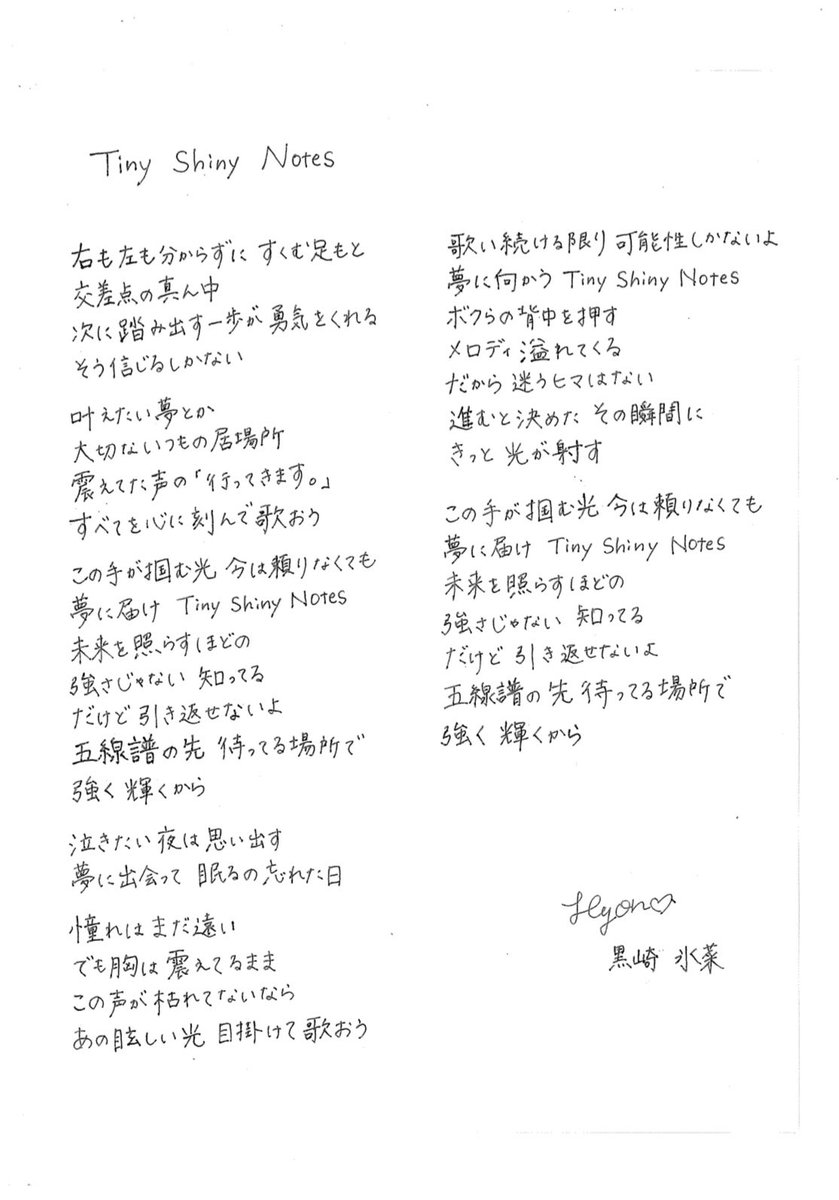 Tiny Shiny Notes
右も左も分からずに すくむ足もと
交差点の真ん中
次に踏み出す一歩が 勇気をくれる
そう信じるしかない
叶えたい夢とか
大切ないつもの居場所
震えてた声の「行ってきます。」
すべてを心に刻んで歌おう
この手が掴む光 今は頼りなくても
夢に届け Tiny Shiny Notes
未来を照らすほどの
強さじゃない 知ってる
だけど 引き返せないよ
五線譜の先 待ってる場所で
強く 輝くから
泣きたい夜は思い出す
夢に出会って 眠るの忘れた日
憧れはまだ遠い
でも胸は 震えてるまま
この声が枯れてないなら
あの眩しい光 目掛けて歌おう
歌い続ける限り 可能性しかないよ
夢に向かう Tiny Shiny Notes
ボクらの背中を押す
メロディ 溢れてくる
だから 迷うヒマはない
進むと決めた その瞬間に
きっと 光が射す
この手が掴む光 今は頼りなくても
夢に届け Tiny Shiny Notes
未来を照らすほどの
強さじゃない 知ってる
だけど 引き返せないよ
五線譜の先 待ってる場所で
強く 輝くから
Hyon♡
黒崎 氷菜